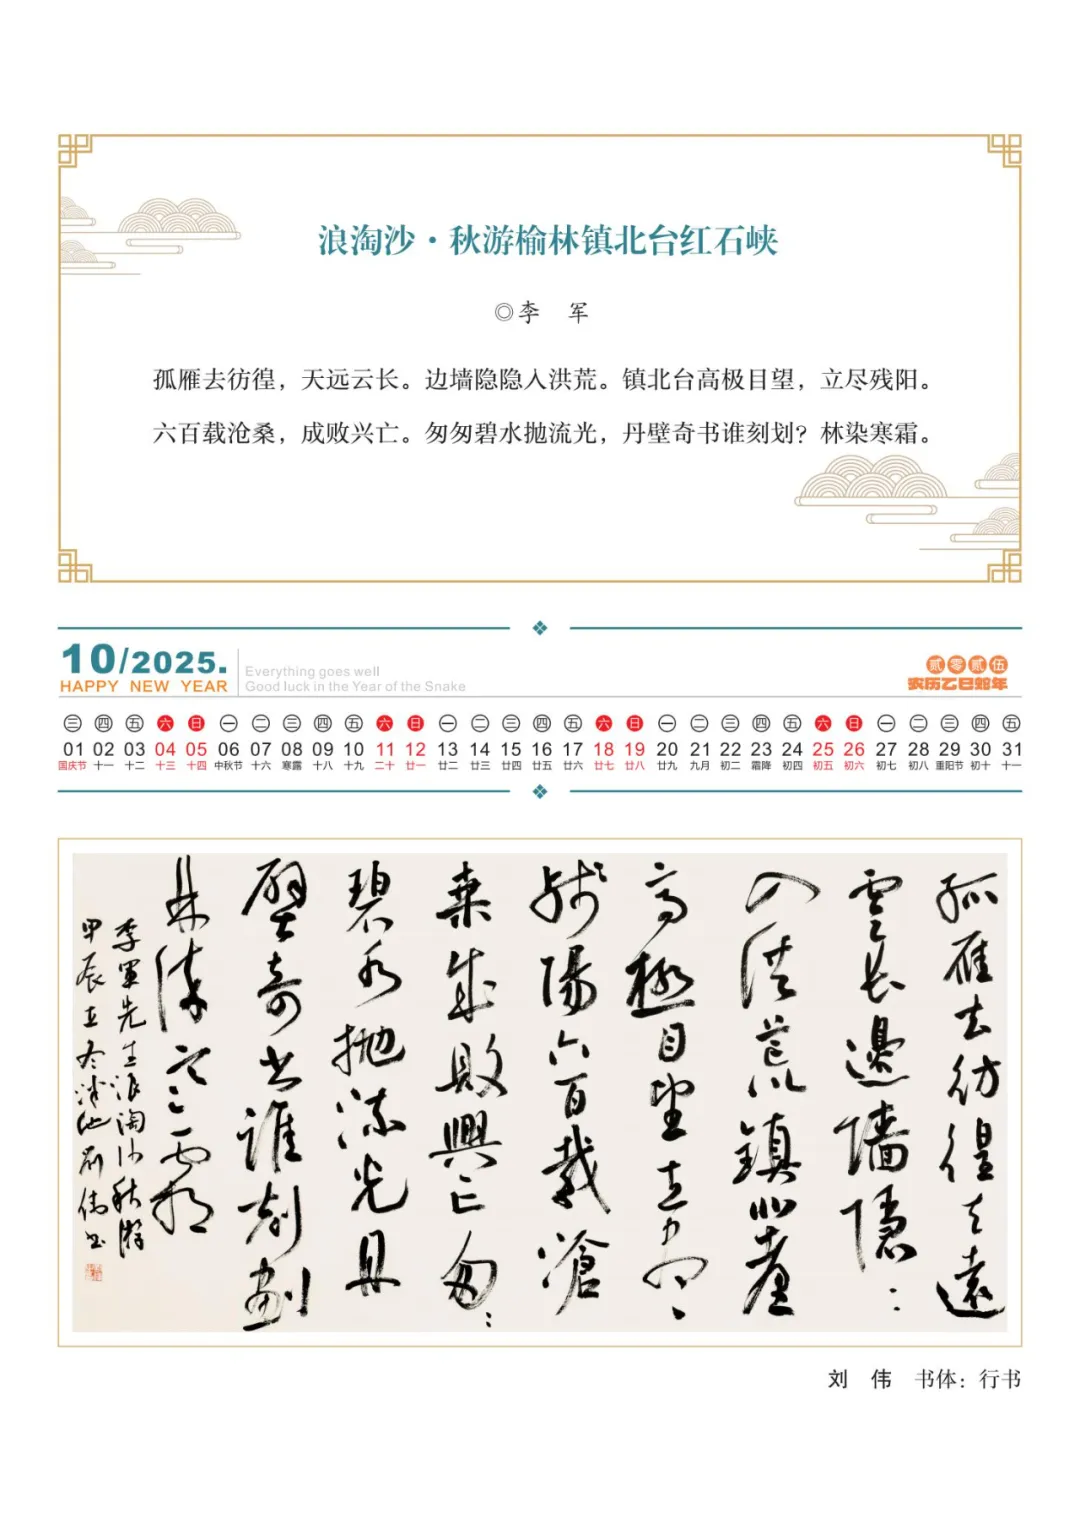 浪淘沙·秋游榆林镇北台红石峡
◎李 军
孤雁去彷徨，天远云长。边墙隐隐入洪荒。镇北台高极目望，立尽残阳。
六百载沧桑，成败兴亡。匆匆碧水抛流光，丹壁奇书谁刻划？林染寒霜。
10/2025.
HAPPY NEW YEAR
Everything goes well
Good luck in the Year of the Snake
贰零贰伍
农历乙巳蛇年
三 四 五 六 日 一 二 三 四 五 六 日 一 二 三 四 五 六 日 一 二 三 四 五 六 日 一 二 三 四 五
01 02 03 04 05 06 07 08 09 10 11 12 13 14 15 16 17 18 19 20 21 22 23 24 25 26 27 28 29 30 31
国庆节 十一 十二 十三 十四 中秋节 十六 寒露 十八 十九 二十 廿一 廿二 廿三 廿四 廿五 廿六 廿七 廿八 廿九 九月 初二 霜降 初四 初五 初六 初七 初八 重阳节 初十 十一
孤雁去彷徨天遠
雲長邊墻隱：
入洪荒鎮北臺
高極目望立盡
殘陽六百載滄
桑成敗興亡匆：
碧水拋流光丹
壁奇书誰刻劃
林染寒霜
李軍先生浪淘沙秋游
甲辰立冬 刘偉书
刘 伟 书体：行书